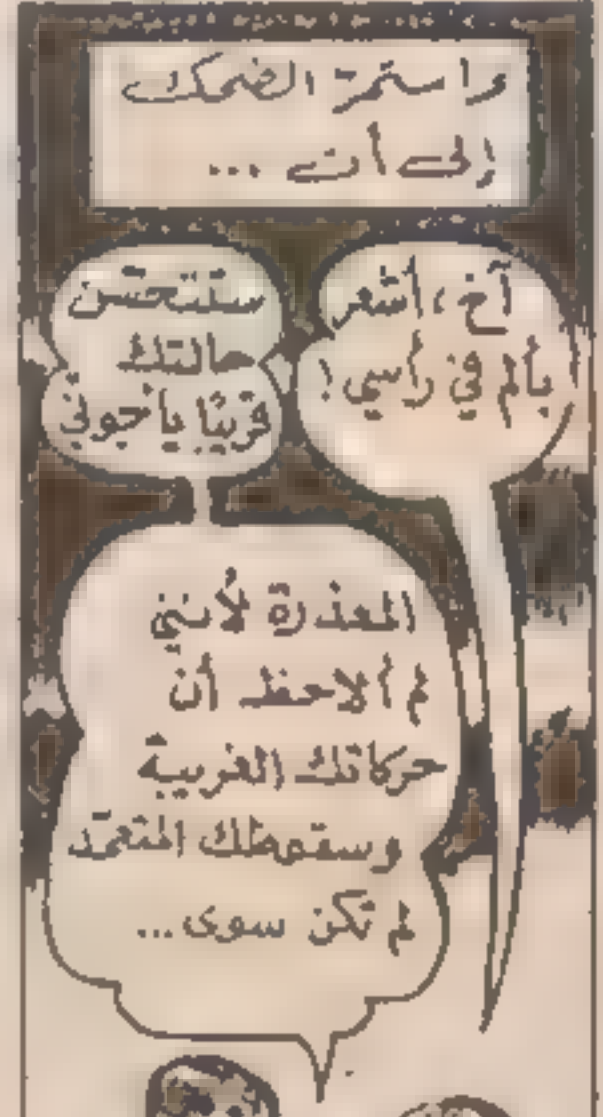 واستمرّ الضحك
إلى أن ...
آخ ، أشعر
بألم في رأسي !
ستتحسّن
حالتك
قريبًا يا جوني
المعذرة لأنني
لم ألاحظ أن
حركاتك الغريبة
وسقوطك المتعمّد
لم تكن سوى ...